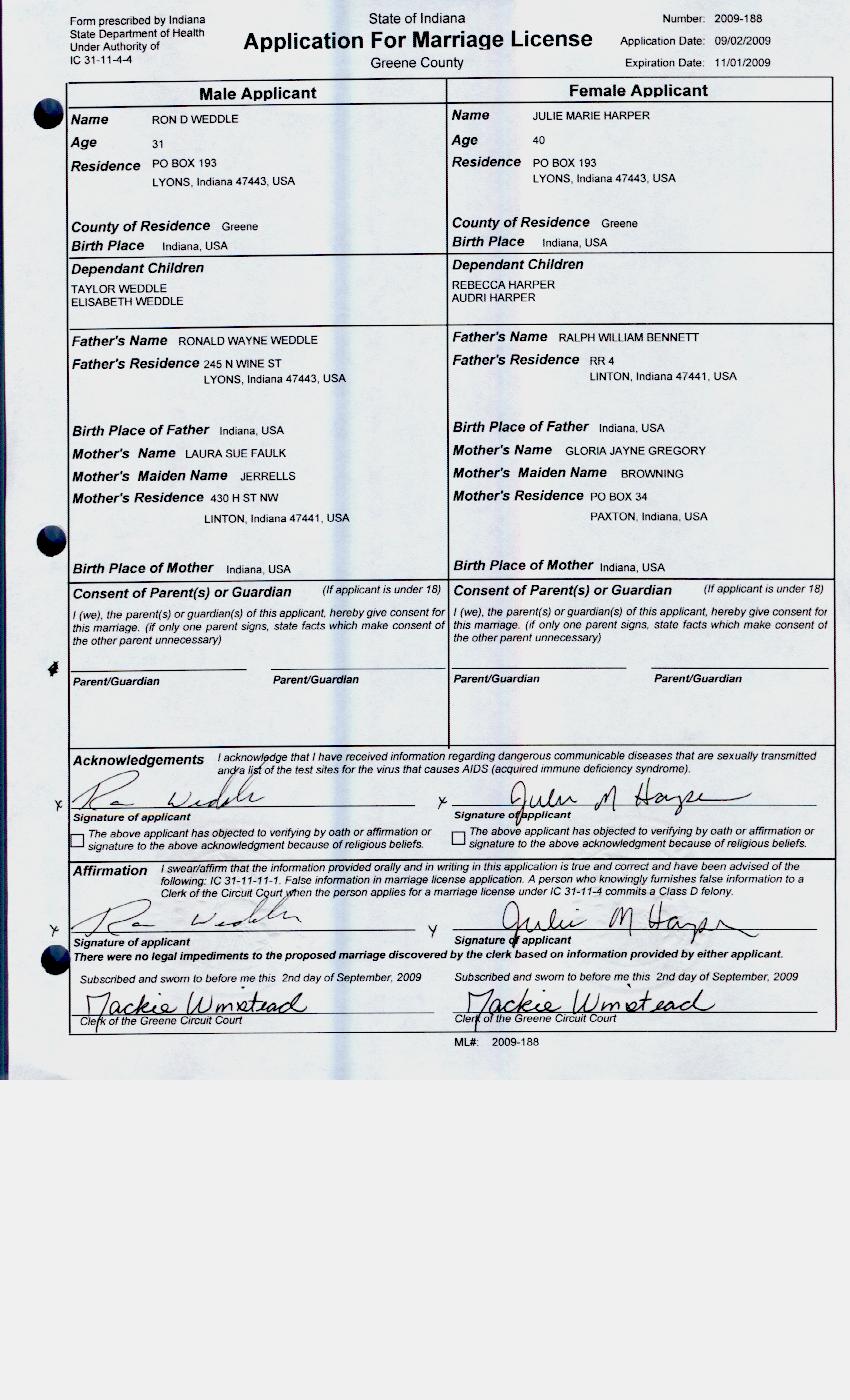 Form prescribed by Indiana
State Department of Health
Under Authority of
IC 31-11-4-4
State of Indiana
Application For Marriage License
Greene County
Number: 2009-188
Application Date: 09/02/2009
Expiration Date: 11/01/2009
Male Applicant
Name RON D WEDDLE
Age 31
Residence PO BOX 193
LYONS, Indiana 47443, USA
County of Residence Greene
Birth Place Indiana, USA
Dependant Children
TAYLOR WEDDLE
ELISABETH WEDDLE
Father's Name RONALD WAYNE WEDDLE
Father's Residence 245 N WINE ST
LYONS, Indiana 47443, USA
Birth Place of Father Indiana, USA
Mother's Name LAURA SUE FAULK
Mother's Maiden Name JERRELLS
Mother's Residence 430 H ST NW
LINTON, Indiana 47441, USA
Birth Place of Mother Indiana, USA
Consent of Parent(s) or Guardian (If applicant is under 18)
I (we), the parent(s) or guardian(s) of this applicant, hereby give consent for
this marriage. (if only one parent signs, state facts which make consent of
the other parent unnecessary)
Parent/Guardian Parent/Guardian
Female Applicant
Name JULIE MARIE HARPER
Age 40
Residence PO BOX 193
LYONS, Indiana 47443, USA
County of Residence Greene
Birth Place Indiana, USA
Dependant Children
REBECCA HARPER
AUDRI HARPER
Father's Name RALPH WILLIAM BENNETT
Father's Residence RR 4
LINTON, Indiana 47441, USA
Birth Place of Father Indiana, USA
Mother's Name GLORIA JAYNE GREGORY
Mother's Maiden Name BROWNING
Mother's Residence PO BOX 34
PAXTON, Indiana, USA
Birth Place of Mother Indiana, USA
Consent of Parent(s) or Guardian (If applicant is under 18)
I (we), the parent(s) or guardian(s) of this applicant, hereby give consent for
this marriage. (if only one parent signs, state facts which make consent of
the other parent unnecessary)
Parent/Guardian Parent/Guardian
Acknowledgements I acknowledge that I have received information regarding dangerous communicable diseases that are sexually transmitted
and/a list of the test sites for the virus that causes AIDS (acquired immune deficiency syndrome).
x Ron Weddle x Julie M Harper
Signature of applicant Signature of applicant
The above applicant has objected to verifying by oath or affirmation or
signature to the above acknowledgment because of religious beliefs.
The above applicant has objected to verifying by oath or affirmation or
signature to the above acknowledgment because of religious beliefs.
Affirmation I swear/affirm that the information provided orally and in writing in this application is true and correct and have been advised of the
following: IC 31-11-11-1. False information in marriage license application. A person who knowingly furnishes false information to a
Clerk of the Circuit Court when the person applies for a marriage license under IC 31-11-4 commits a Class D felony.
x Ron Weddle x Julie M Harper
Signature of applicant Signature of applicant
There were no legal impediments to the proposed marriage discovered by the clerk based on information provided by either applicant.
Subscribed and sworn to before me this 2nd day of September, 2009 Subscribed and sworn to before me this 2nd day of September, 2009
Mackie Wmstead Mackie Wmstead
Clerk of the Greene Circuit Court Clerk of the Greene Circuit Court
ML#: 2009-188